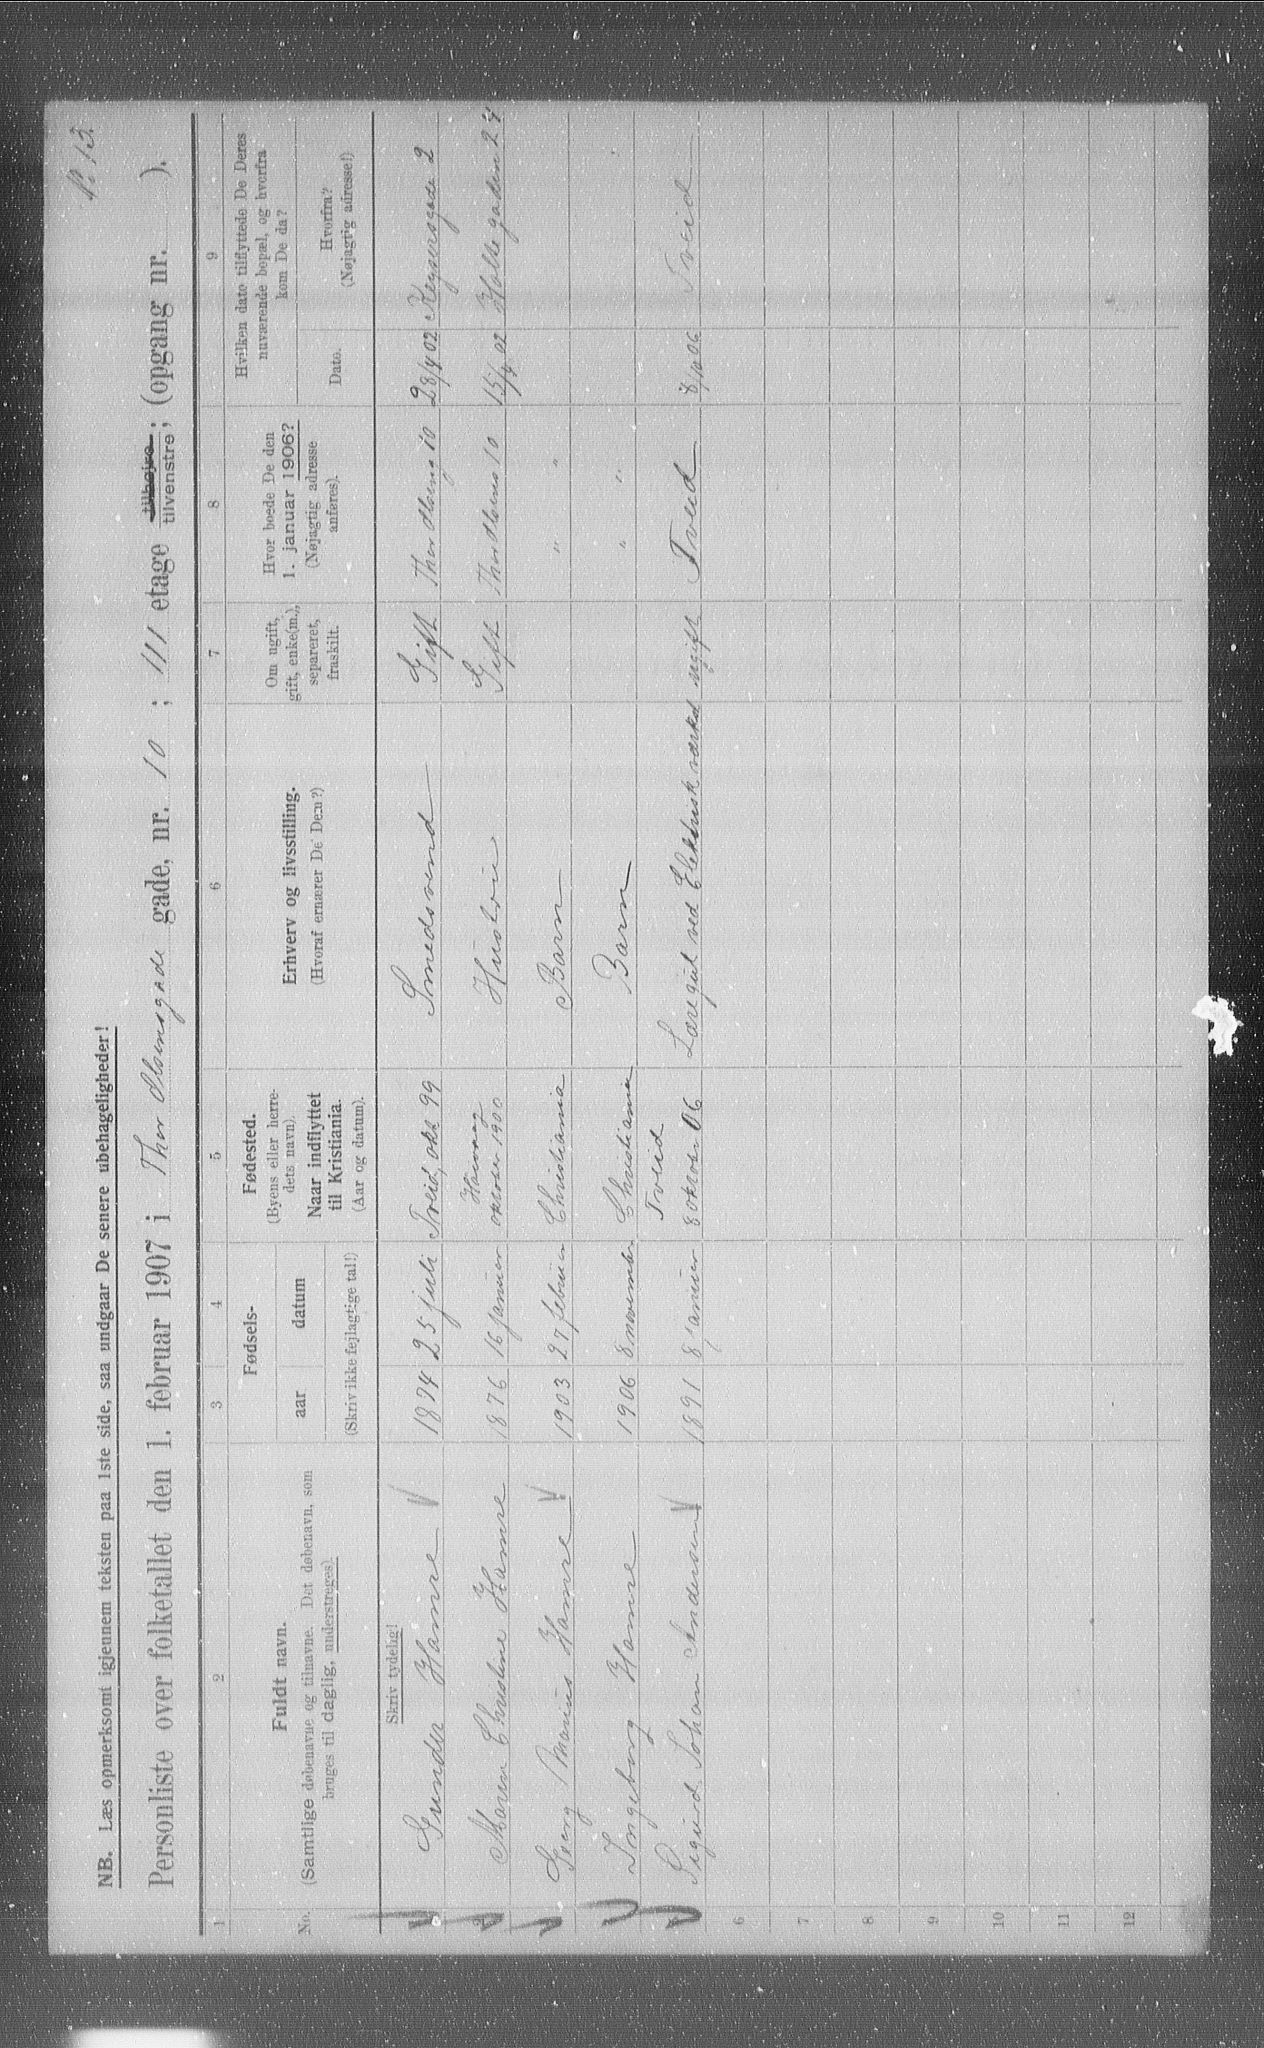 No 13.
NB. Læs opmerksomt igjennem teksten paa 1ste side, saa undgaar De senere ubehageligheder!
Personliste over folketallet den 1. februar 1907 i Thor Olsensgade gade, nr. 10 ; III etage tilhøjre, tilvenstre; (opgang nr. ).
1 2 3 4 5 6 7 8 9
No.
Fuldt navn.
(Samtlige døbenavne og tilnavne. Det døbenavn, som
bruges til daglig, understreges).
Fødsels-
aar datum
(Skriv ikke fejlagtige tal!)
Fødested.
(Byens eller herre-
dets navn).
Naar indflyttet
til Kristiania.
(Aar og datum).
Erhverv og livsstilling.
(Hvoraf ernærer De Dem?)
Om ugift,
gift, enke(m.),
separeret,
fraskilt.
Hvor boede De den
1. januar 1906?
(Nøjagtig adresse
anføres).
Hvilken dato tilflyttede De Deres
nuværende bopæl, og hvorfra
kom De da?
Dato.
Hvorfra?
(Nøjagtig adresse!)
Skriv tydelig!
Gunder Hamre 1874 25 juli Tveid, okt 99 Smedsvend Gift Thor Olsensg 10 28/4 02 Keysersgade 2
Maren Christine Hamre 1876 16 januar oktober 1900 Hustru Gift Thor Olsens 10 15/4 02 Holtegaden 24
Georg Marius Hamre 1903 27 februar Christiania Barn " "
Ingeborg Hamre 1906 8 november Christiania Barn " "
Sigurd Johan Andersen 1891 8 januar Tveid 8 oktober 06 Læregut ved Elektriskværked ugift Tveid 8/10 06 Tveid
6
7
8
9
10
11
12